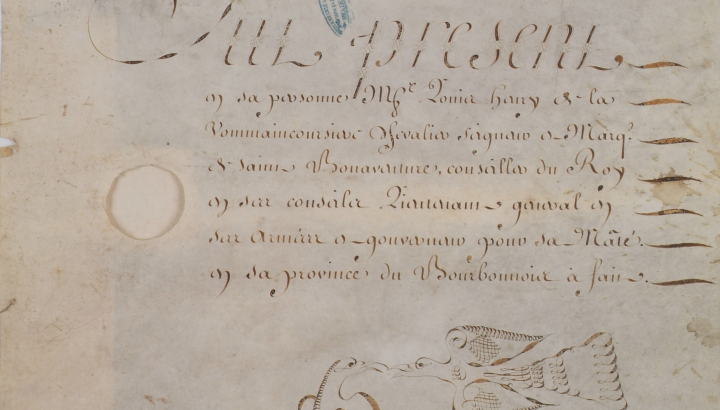 Fut présent
en sa personne Mgr Louis Henry de la
Chevalier seigneur et Marq.
de Saint Bonaventure, conseiller du Roy
en ses conseils Lieutenant général en
ses armées et gouverneur pour sa Maté.
en sa province du Bourbonnois à fair